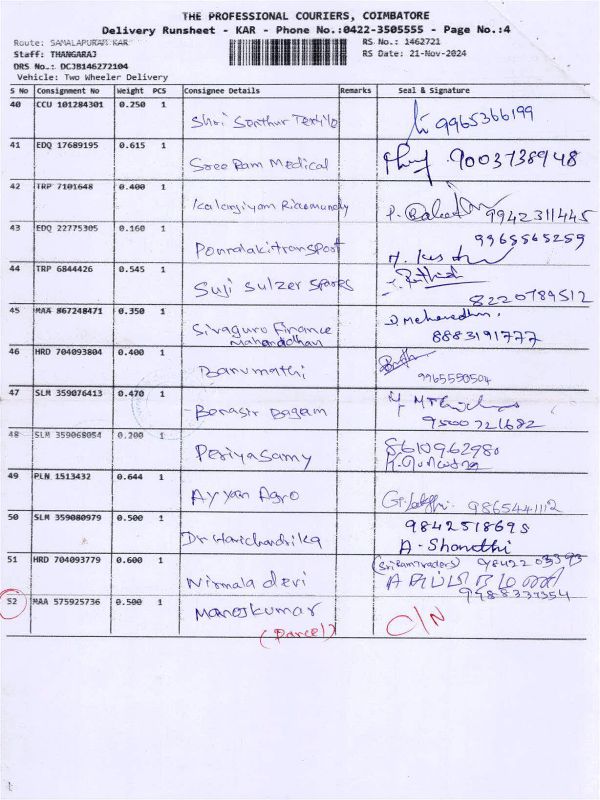 THE PROFESSIONAL COURIERS, COIMBATORE
Delivery Runsheet - KAR - Phone No.:0422-3505555 - Page No.:4
Route: SAMALAPURAM KAR
RS No.: 1462721
Staff: THANGARAJ
RS Date: 21-Nov-2024
DRS No.: DCJB146272104
Vehicle: Two Wheeler Delivery
S No Consignment No Weight PCS Consignee Details Remarks Seal & Signature
40 CCU 101284301 0.250 1 Shri Senthur Textile 9965366199
41 EDQ 17689195 0.615 1 Sree Ram Medical 9003738948
42 TRP 7101648 0.400 1 Kalangiyam Ricemundy 9942311445
43 EDQ 22775305 0.160 1 Ponralakitransport 9965565259
44 TRP 6844426 0.545 1 Suji Sulzer Spares 8220789512
45 MAA 867248471 0.350 1 Sivaguru Finance 8883191777
46 HRD 704093804 0.400 1 Banumathi 9965550504
47 SLM 359076413 0.470 1 Benasir Bagam 9500721682
48 SLM 359068054 0.200 1 Periyasamy
49 PLN 1513432 0.644 1 Ayyan Agro 9865441112
50 SLM 359080979 0.500 1 Dr Harichandrika 9842518695
A-Shanthi
51 HRD 704093779 0.600 1 Nirmala devi (Sri Ram Traders)
52 MAA 575925736 0.500 1 Manojkumar C/N
(Parcel)